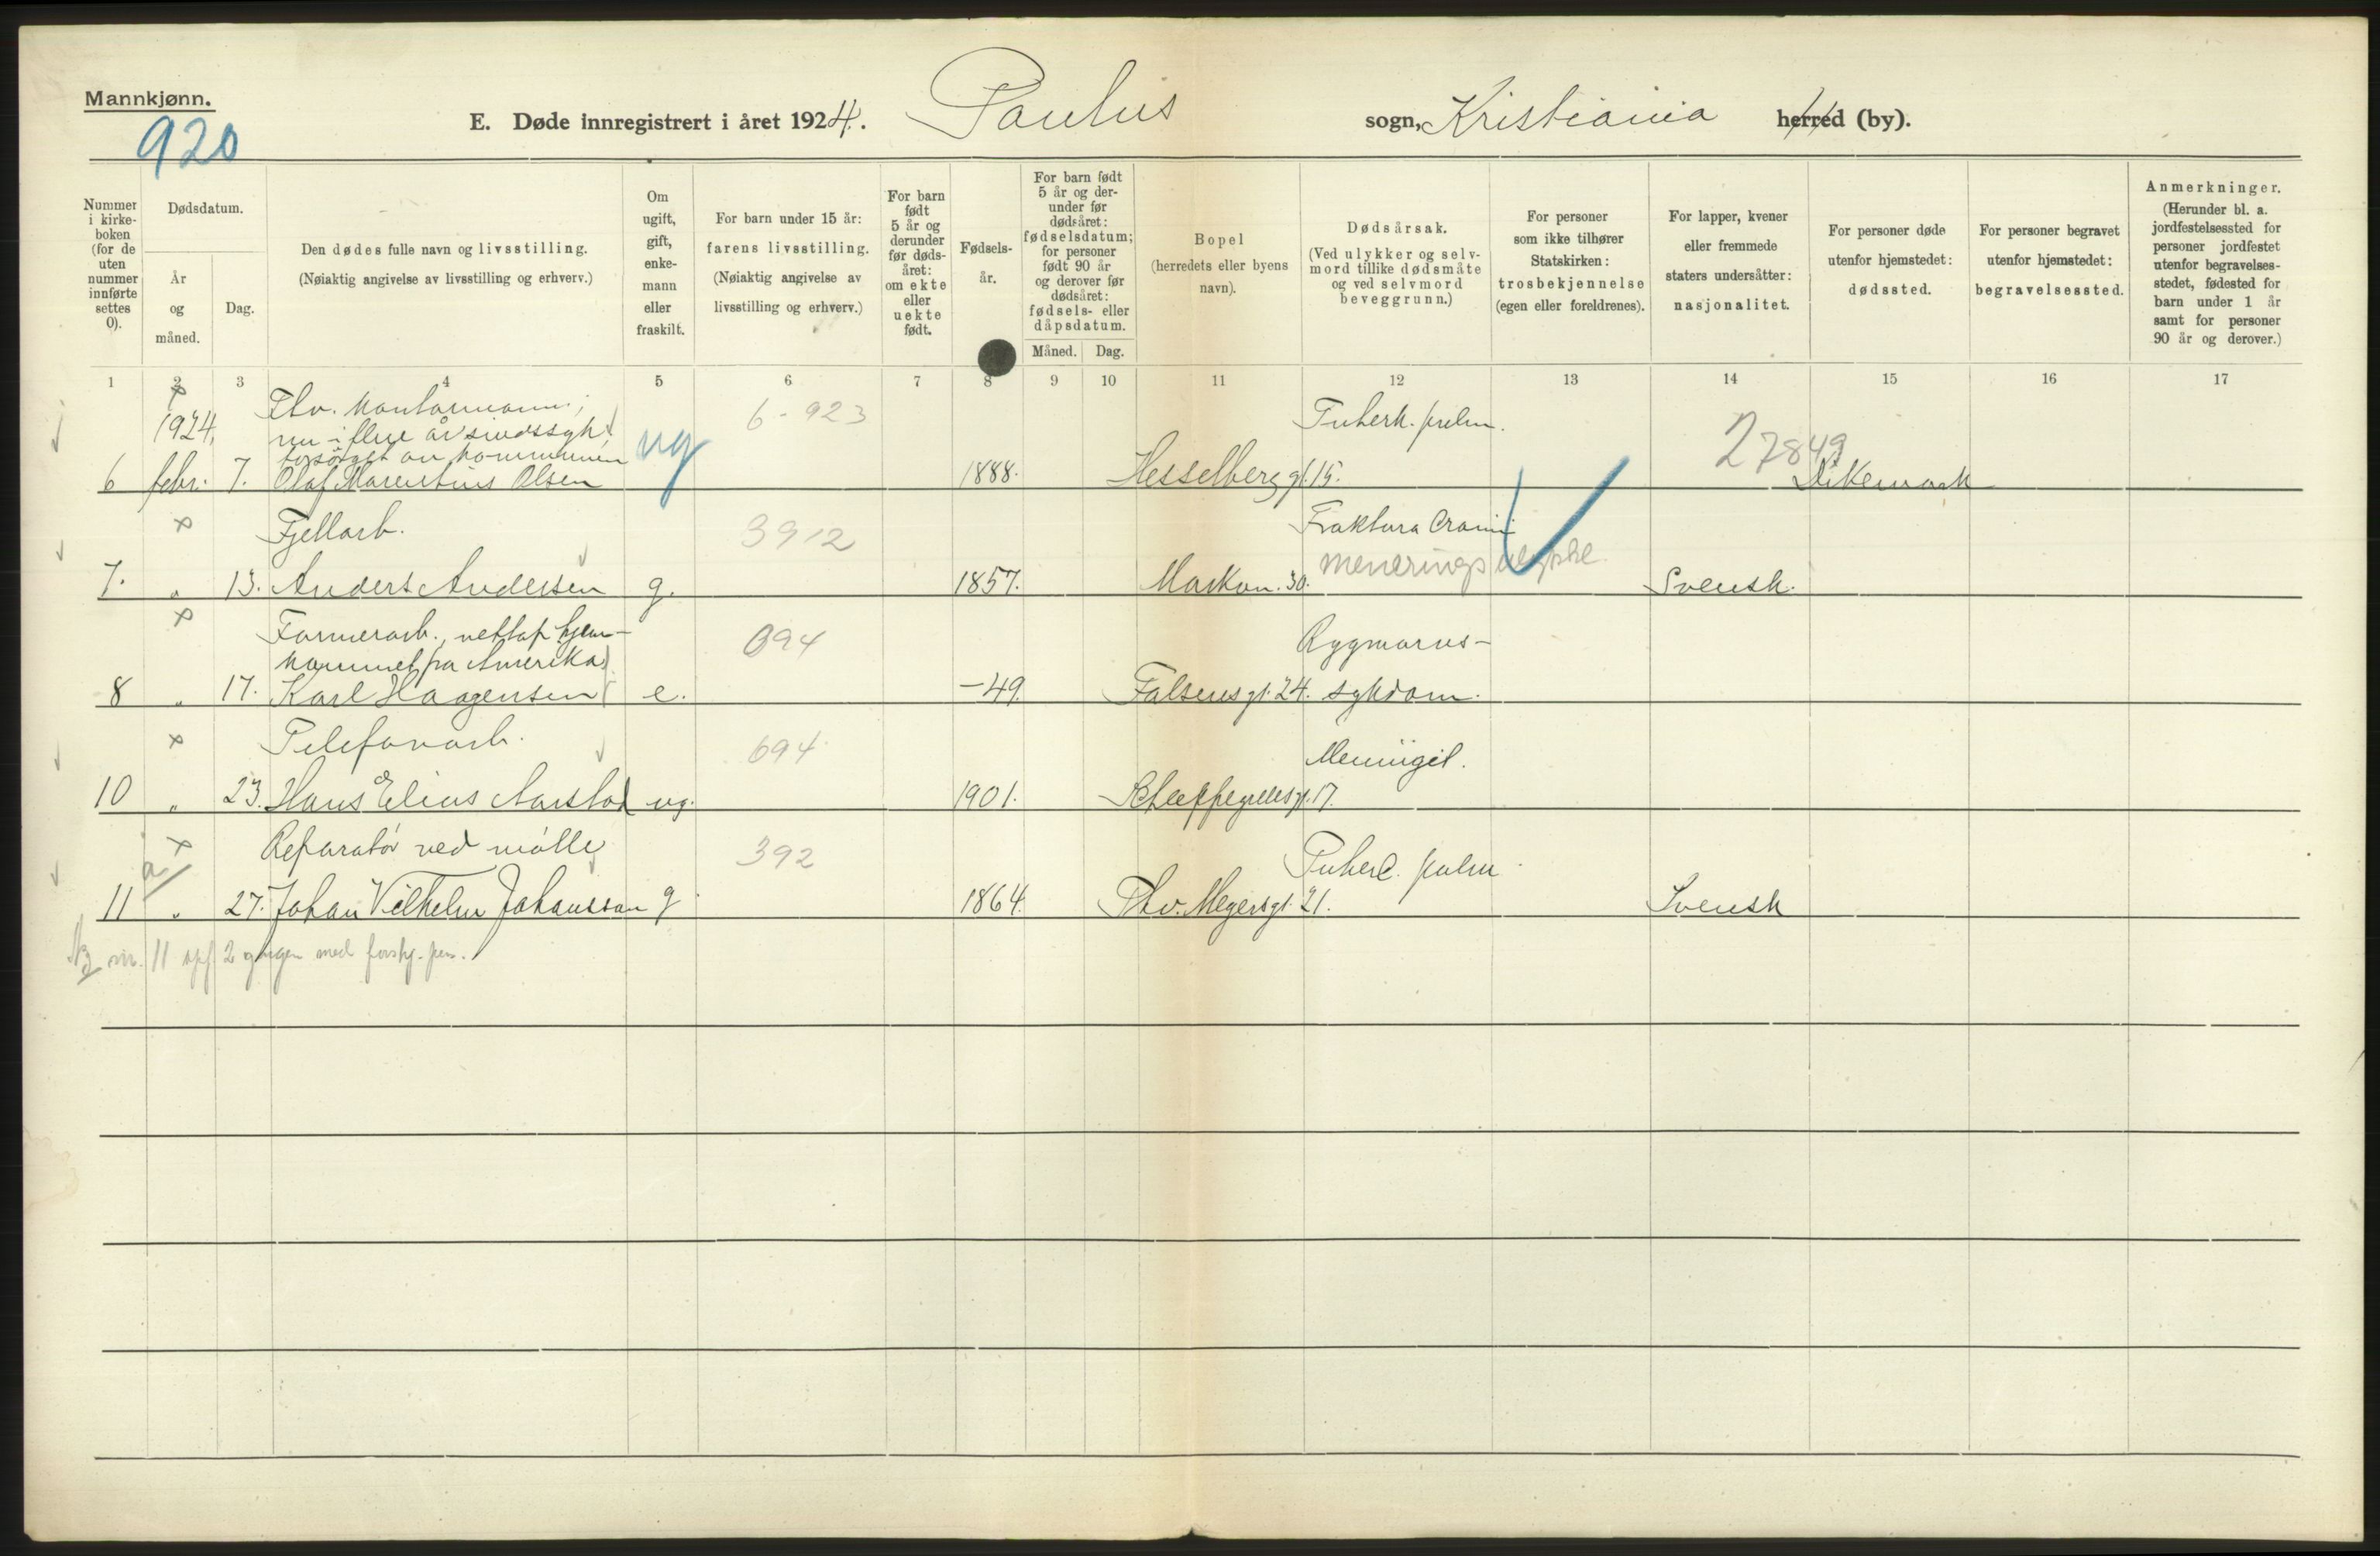 Mannkjønn.
920
E. Døde innregistrert i året 1924. Paulus sogn, Kristiania herred (by).
Nummer i kirke- boken (for de uten nummer innførte settes 0).
Dødsdatum.
År og måned.
Dag.
Den dødes fulle navn og livsstilling.
(Nøiaktig angivelse av livsstilling og erhverv.)
Om ugift, gift, enke- mann eller fraskilt.
For barn under 15 år:
farens livsstilling.
(Nøiaktig angivelse av
livsstilling og erhverv.)
For barn født 5 år og derunder før døds- året: om ekte eller uekte født.
Fødsels- år.
For barn født 5 år og der- under før dødsåret: fødselsdatum; for personer født 90 år og derover før dødsåret: fødsels- eller dåpsdatum.
Måned. Dag.
Bopel
(herredets eller byens
navn).
Dødsårsak.
(Ved ulykker og selv-
mord tillike dødsmåte
og ved selvmord
beveggrunn.)
For personer
som ikke tilhører
Statskirken:
trosbekjennelse
(egen eller foreldrenes).
For lapper, kvener
eller fremmede
staters undersåtter:
nasjonalitet.
For personer døde
utenfor hjemstedet:
dødssted.
For personer begravet
utenfor hjemstedet:
begravelsessted.
Anmerkninger.
(Herunder bl. a.
jordfestelsessted for
personer jordfestet
utenfor begravelses-
stedet, fødested for
barn under 1 år
samt for personer
90 år og derover.)
1 2 3 4 5 6 7 8 9 10 11 12 13 14 15 16 17
Fhv. kontormann;
1924. nu i flere år sindssyk 6-923 Tuberk. pulm.
forsørget av kommunen ug 27849
6 febr. 7. Olaf Marentius Olsen 1888. Hesselberg gt. 15. Dikemark
Fjellarb. 3912 Fraktura Cranii
menerings ulykke
7. " 13. Anders Andersen g. 1857. Markvn. 30. Svensk.
Farmerarb., nettop hjem- 694 Rygmarvs-
kommet fra Amerika
8 " 17. Karl Haagensen e. -49. Falsensgt. 24. sykdom.
Telefonarb. 694 Meningit.
10 " 23. Hans Elias Aarstad ug. 1901. Schleppegrellsgt. 17.
Reparatør ved mølle 392 Tuberc. pulm
a/
11 " 27. Johan Vilhelm Johansson g 1864. Thv. Meyersgt. 21. Svensk
Nb nr. 11 opf 2 ganger med forskj. pers.